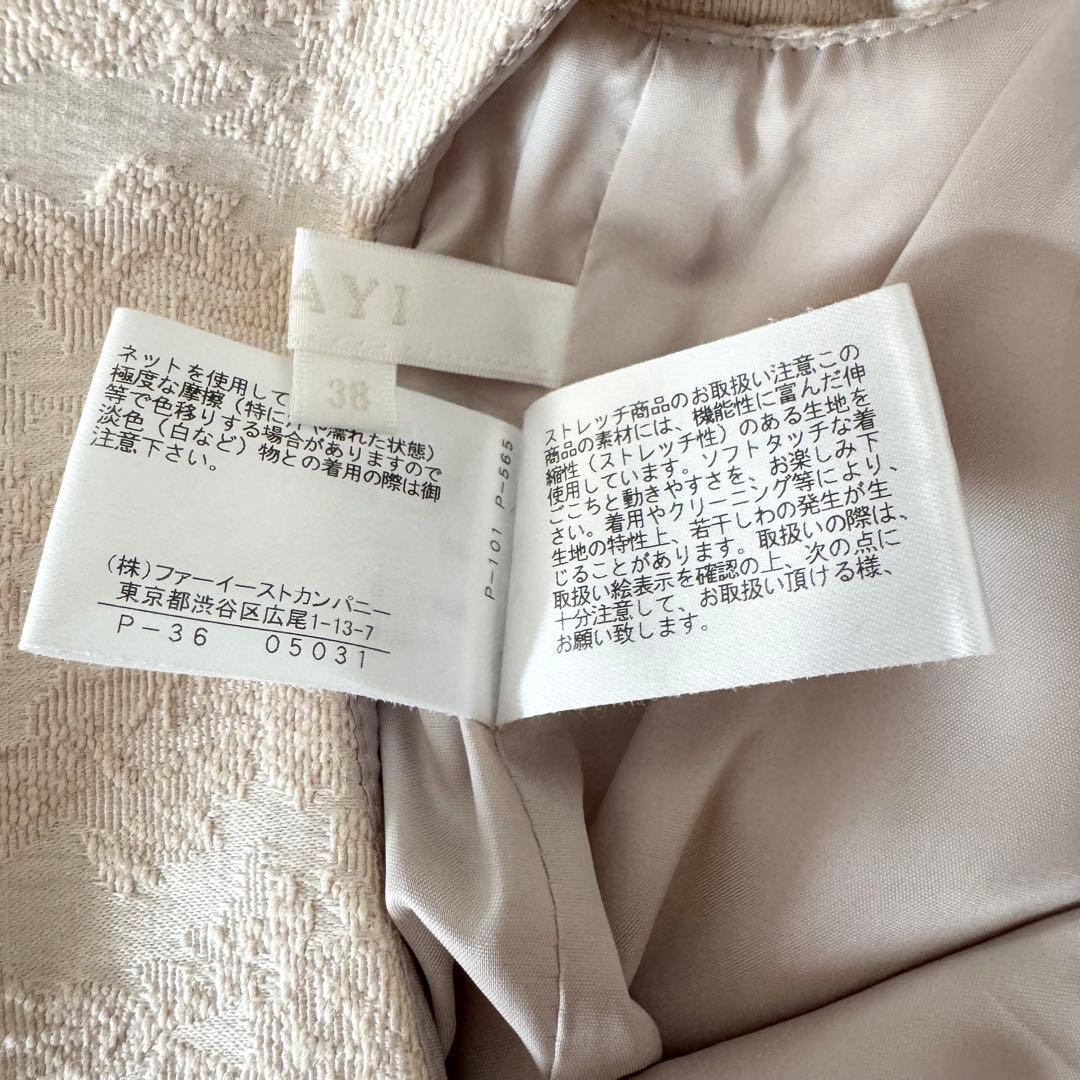 AYI
38
ネットを使用して
極度な摩擦(特に
や濡れた状態)
等で色移りする場合がありますので
淡色(白など)物との着用の際は御
注意下さい。
(株)ファーイーストカンパニー
東京都渋谷区広尾1-13-7
P-36 05031
P-101 P-565
ストレッチ商品のお取扱い注意この
商品の素材には、機能性に富んだ伸
縮性(ストレッチ性)のある生地を
使用しています。ソフトタッチな着
ごこちと動きやすさを、お楽しみ下
さい。着用やクリーニング等により、
生地の特性上、若干しわの発生が生
じることがあります。取扱いの際は、
取扱い絵表示を確認の上、次の点に
十分注意して、お取扱い頂ける様、
お願い致します。